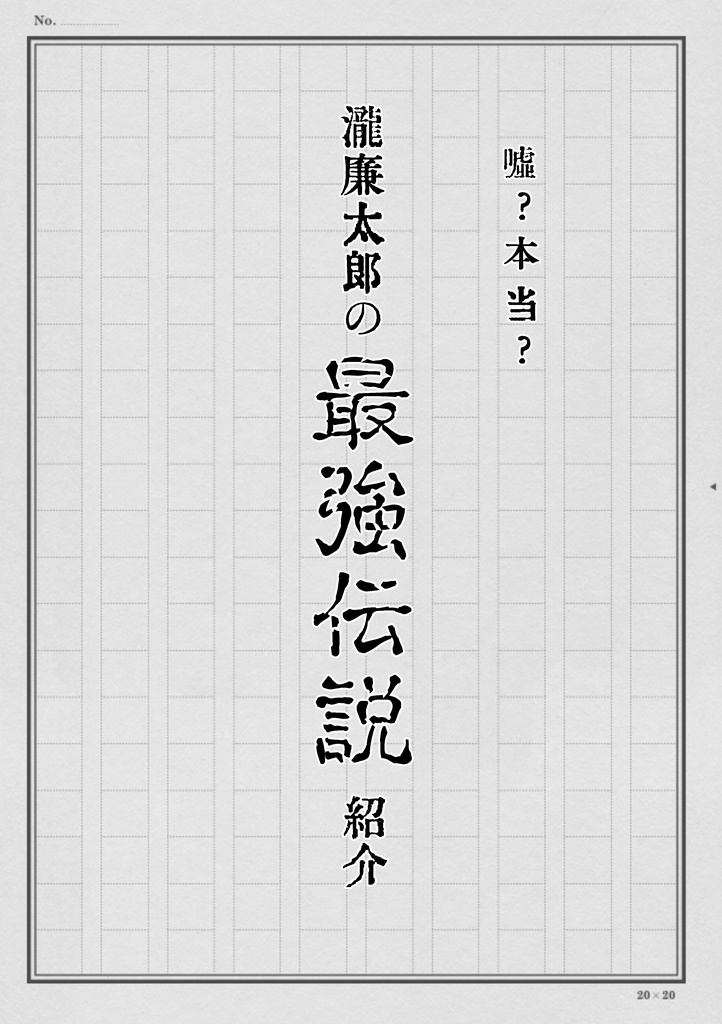 No.
嘘？本当？
瀧廉太郎の最強伝説紹介
20×20